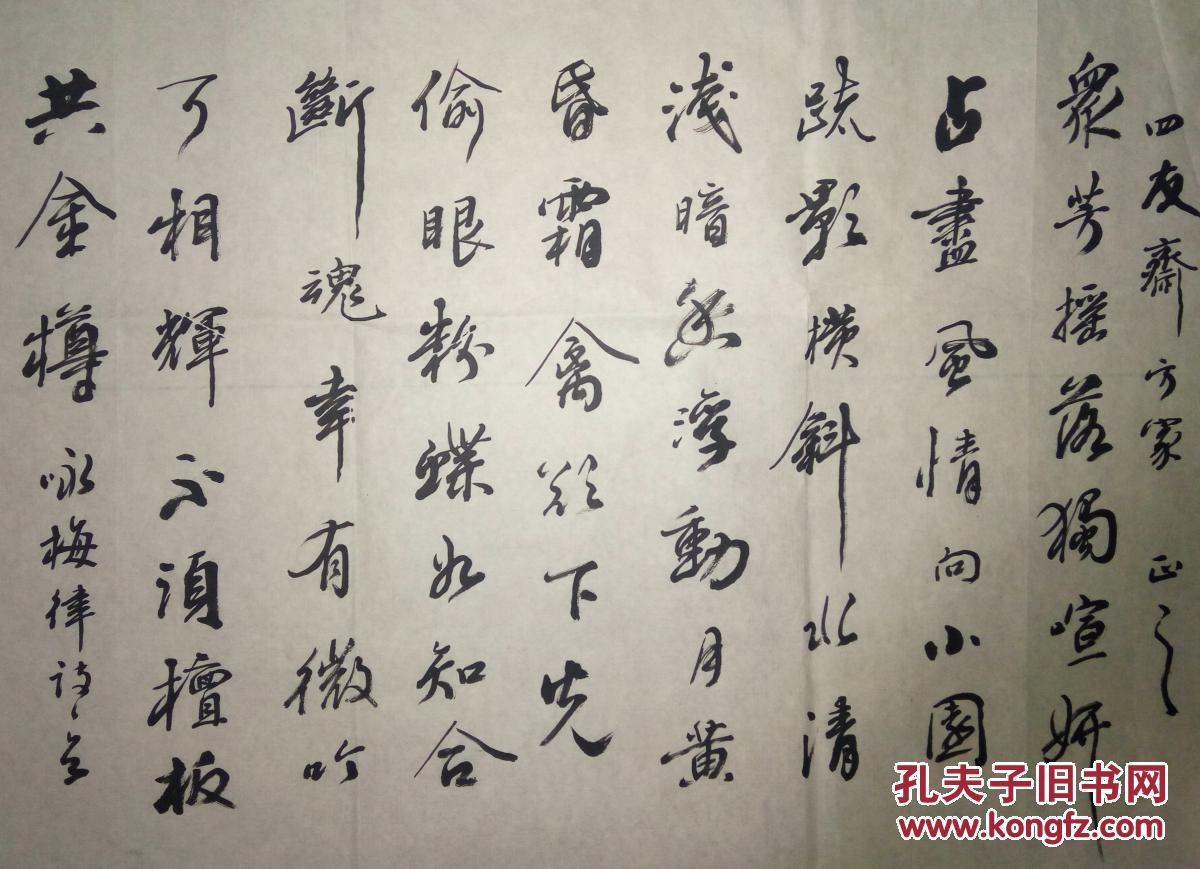 四友齋方家 正之
衆芳搖落獨喧妍
占盡風情向小園
疏影橫斜水清
淺暗香浮動月黃
昏霜禽欲下先
偷眼粉蝶如知合
斷魂幸有微吟
可相輝不須檀板
共金樽 咏梅律诗
孔夫子旧书网
www.kongfz.com